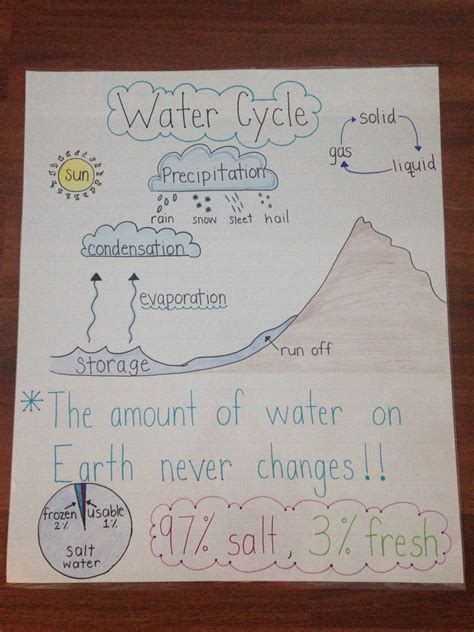 Water Cycle
solid
gas
liquid
sun
Precipitation
rain snow sleet hail
condensation
evaporation
run off
Storage
* The amount of water on
Earth never changes!!
frozen
2%
usable
1%
salt
water
97% salt, 3% fresh